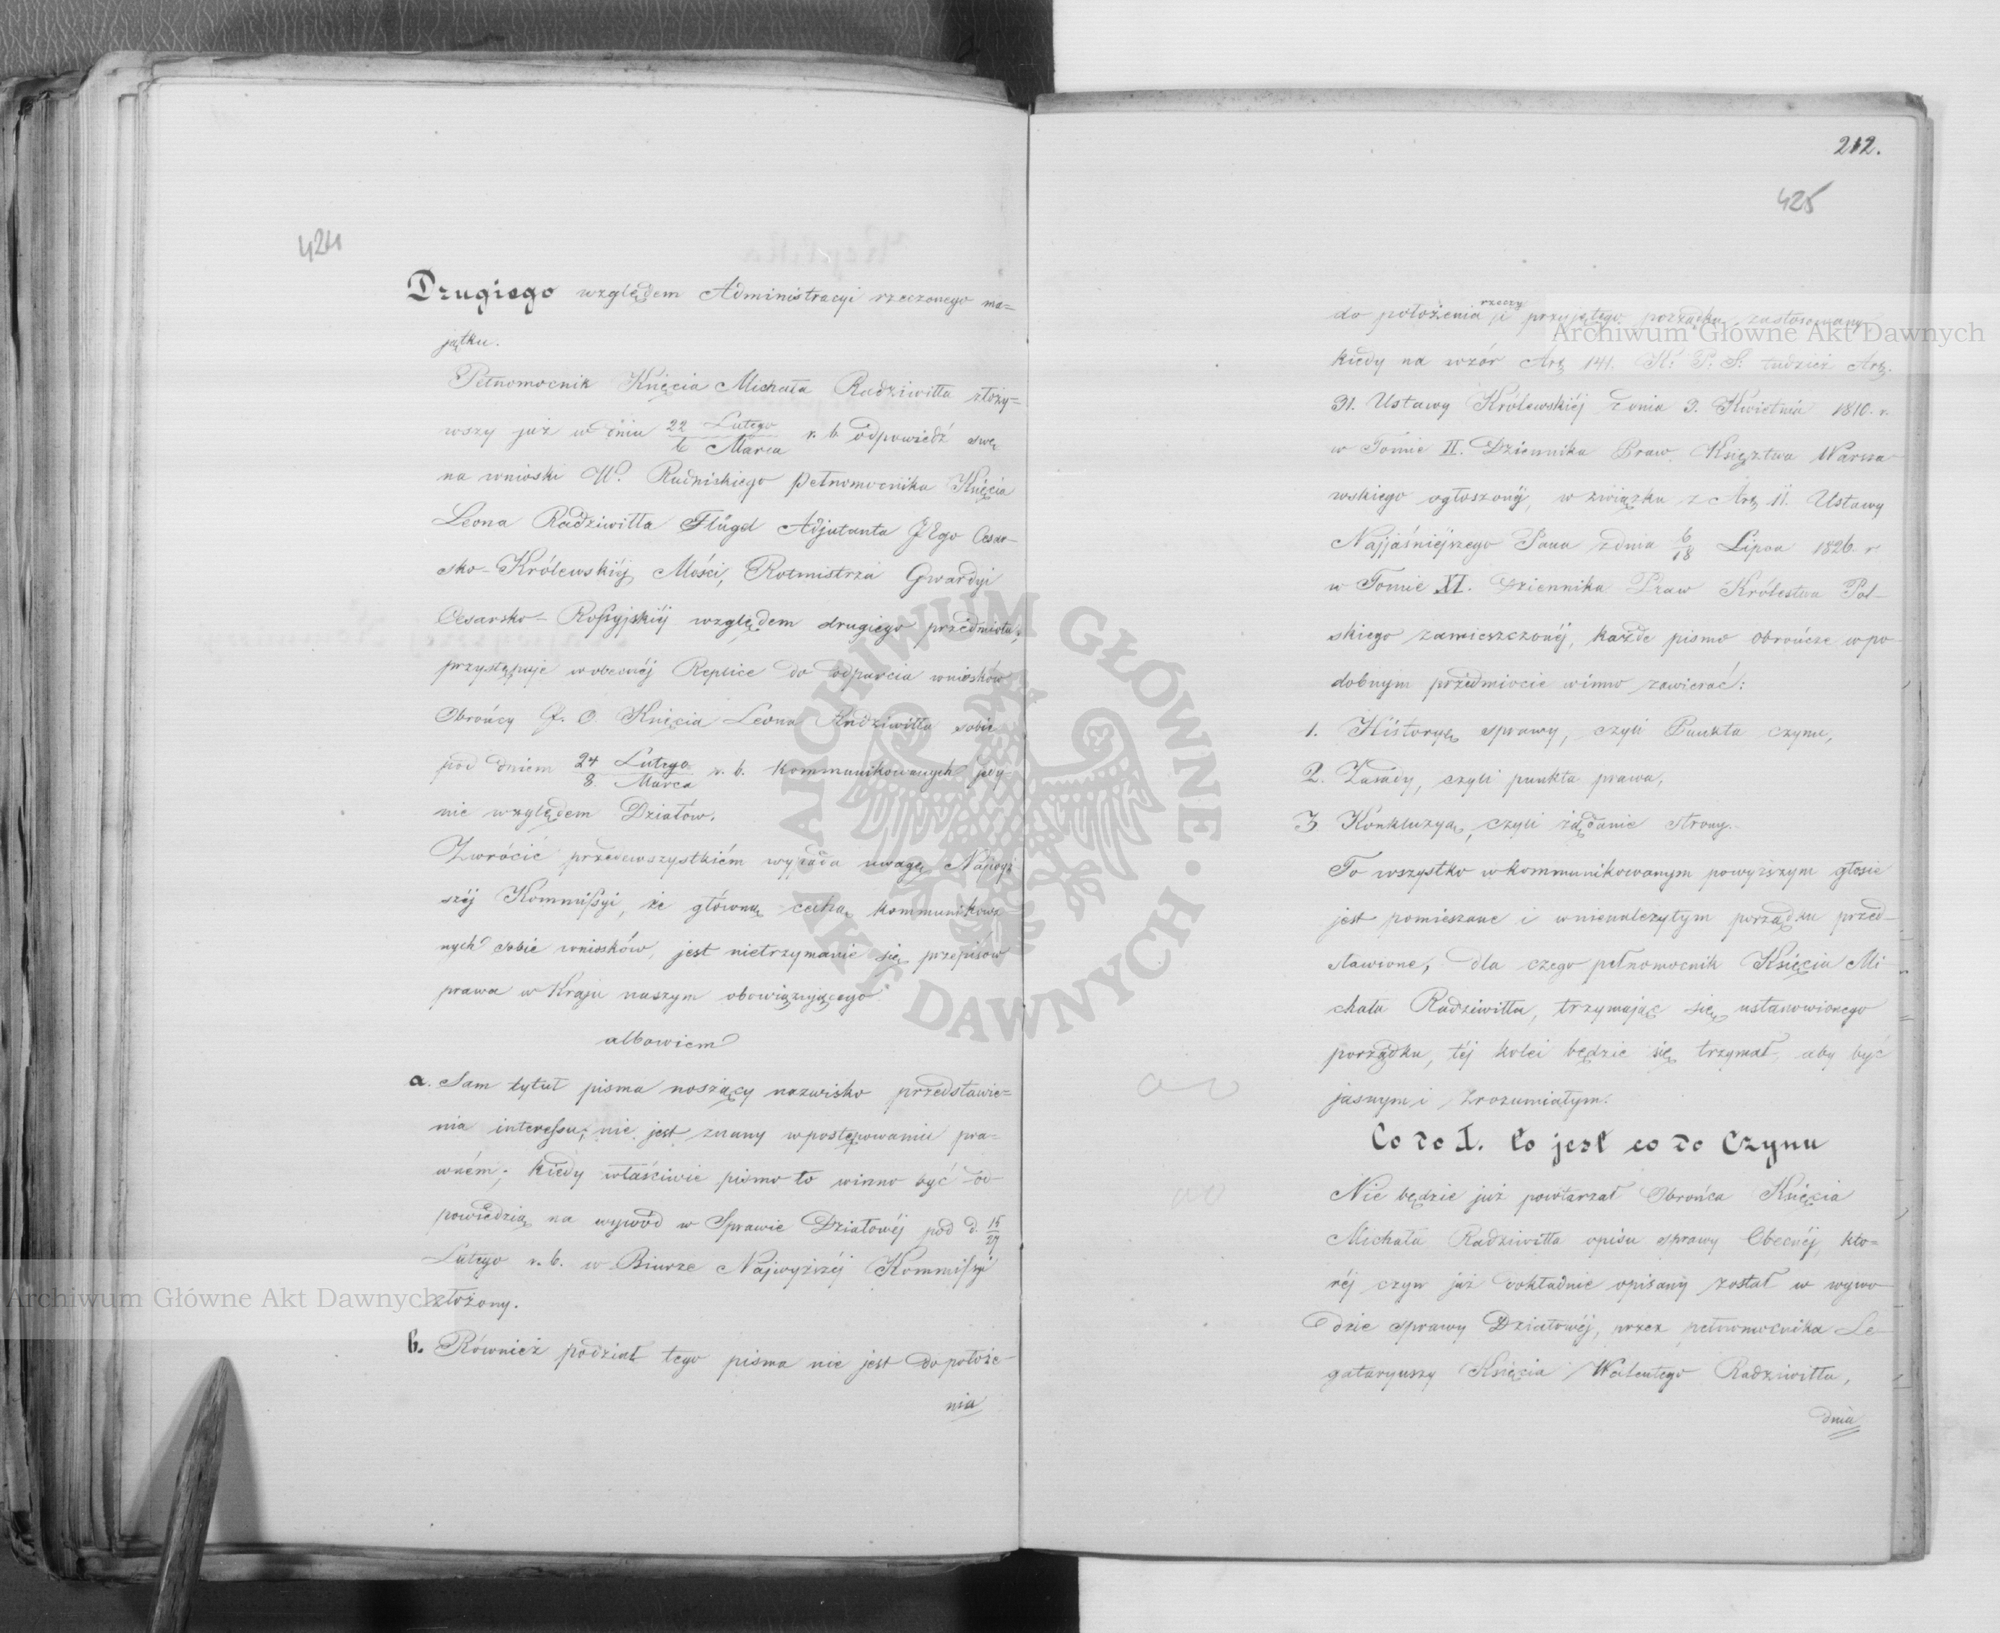 424
Drugiego względem Administracyi rzeczonego ma=
jątku.
Pełnomocnik Xsięcia Michała Radziwiłła złoży=
wszy już w dniu 22 Lutego / 6 Marca r. b. odpowiedź swę
na wnioski W. Rudniskiego pełnomocnika Xsięcia
Leona Radziwiłła Flügel Adjutanta JEgo Cesar-
sko-Królewskiéj Mości, Rotmistrza Gwardyi
Cesarsko-Rossyjskiéj względem drugiego przedmiotu;
przystępuje w obecnéj Replice do odparcia wniosków
Obrońcy J. O. Xsięcia Leona Radziwiłła sobie
pod dniem 24 Lutego / 8 Marca r. b. kommunikowanych jedy
nie względem Działów.
Zwrócić przedewszystkiém wypada uwagę Najwyż
széj Kommissyi, że główną cechą kommunikowa-
nych sobie wniosków, jest nietrzymanie się przepisów
prawa w Kraju naszym obowiązującego.
albowiem
a. Sam tytuł pisma noszący nazwisko przedstawie=
nia interessu, nie jest znany w postępowaniu pra=
wném; kiedy właściwie pismo to winno być od-
powiedzią na wywód w Sprawie Działowéj pod d. 15/27
Lutego r. b. w Biurze Najwyższéj Kommissyi
złożony.
b. Również podział tego pisma nie jest do położe-
nia
212.
425
do położenia rzeczy i przyjętego porządku zastosowany
kiedy na wzór Art. 141. K: P: S. tudzież Art.
31. Ustawy Królewskiéj z dnia 3. Kwietnia 1810. r.
w Tomie II. Dziennika Praw Xsięztwa Warsza
wskiego ogłoszonéj, w związku z Art. 11. Ustawy
Najjaśniejszego Pana z dnia 6/18 Lipca 1826. r
w Tomie XI. Dziennika Praw Królestwa Pol-
skiego zamieszczonéj, każde pismo obrończe w po-
dobnym przedmiocie winno zawierać:
1. Historyę sprawy, czyli Punkta czynu,
2. Zasady, czyli punkta prawa,
3 Konkluzyą, czyli żądanie strony.
To wszystko w kommunikowanym powyższym głosie
jest pomieszane i w nienależytym porządku przed-
stawione, dla czego pełnomocnik Xsięcia Mi-
chała Radziwiłła, trzymając się ustanowionego
porządku, téj kolei będzie się trzymał, aby być
jasnym i zrozumiałym.
Co do I. to jest co do Czynu
Nie będzie już powtarzał Obrońca Xsięcia
Michała Radziwiłła opisu sprawy Obecnéj, któ=
réj czyn już dokładnie opisany został w wywo
dzie sprawy Działowéj, przez pełnomocnika Le-
gataryuszy Xsięcia Walentego Radziwiłła,
dnia